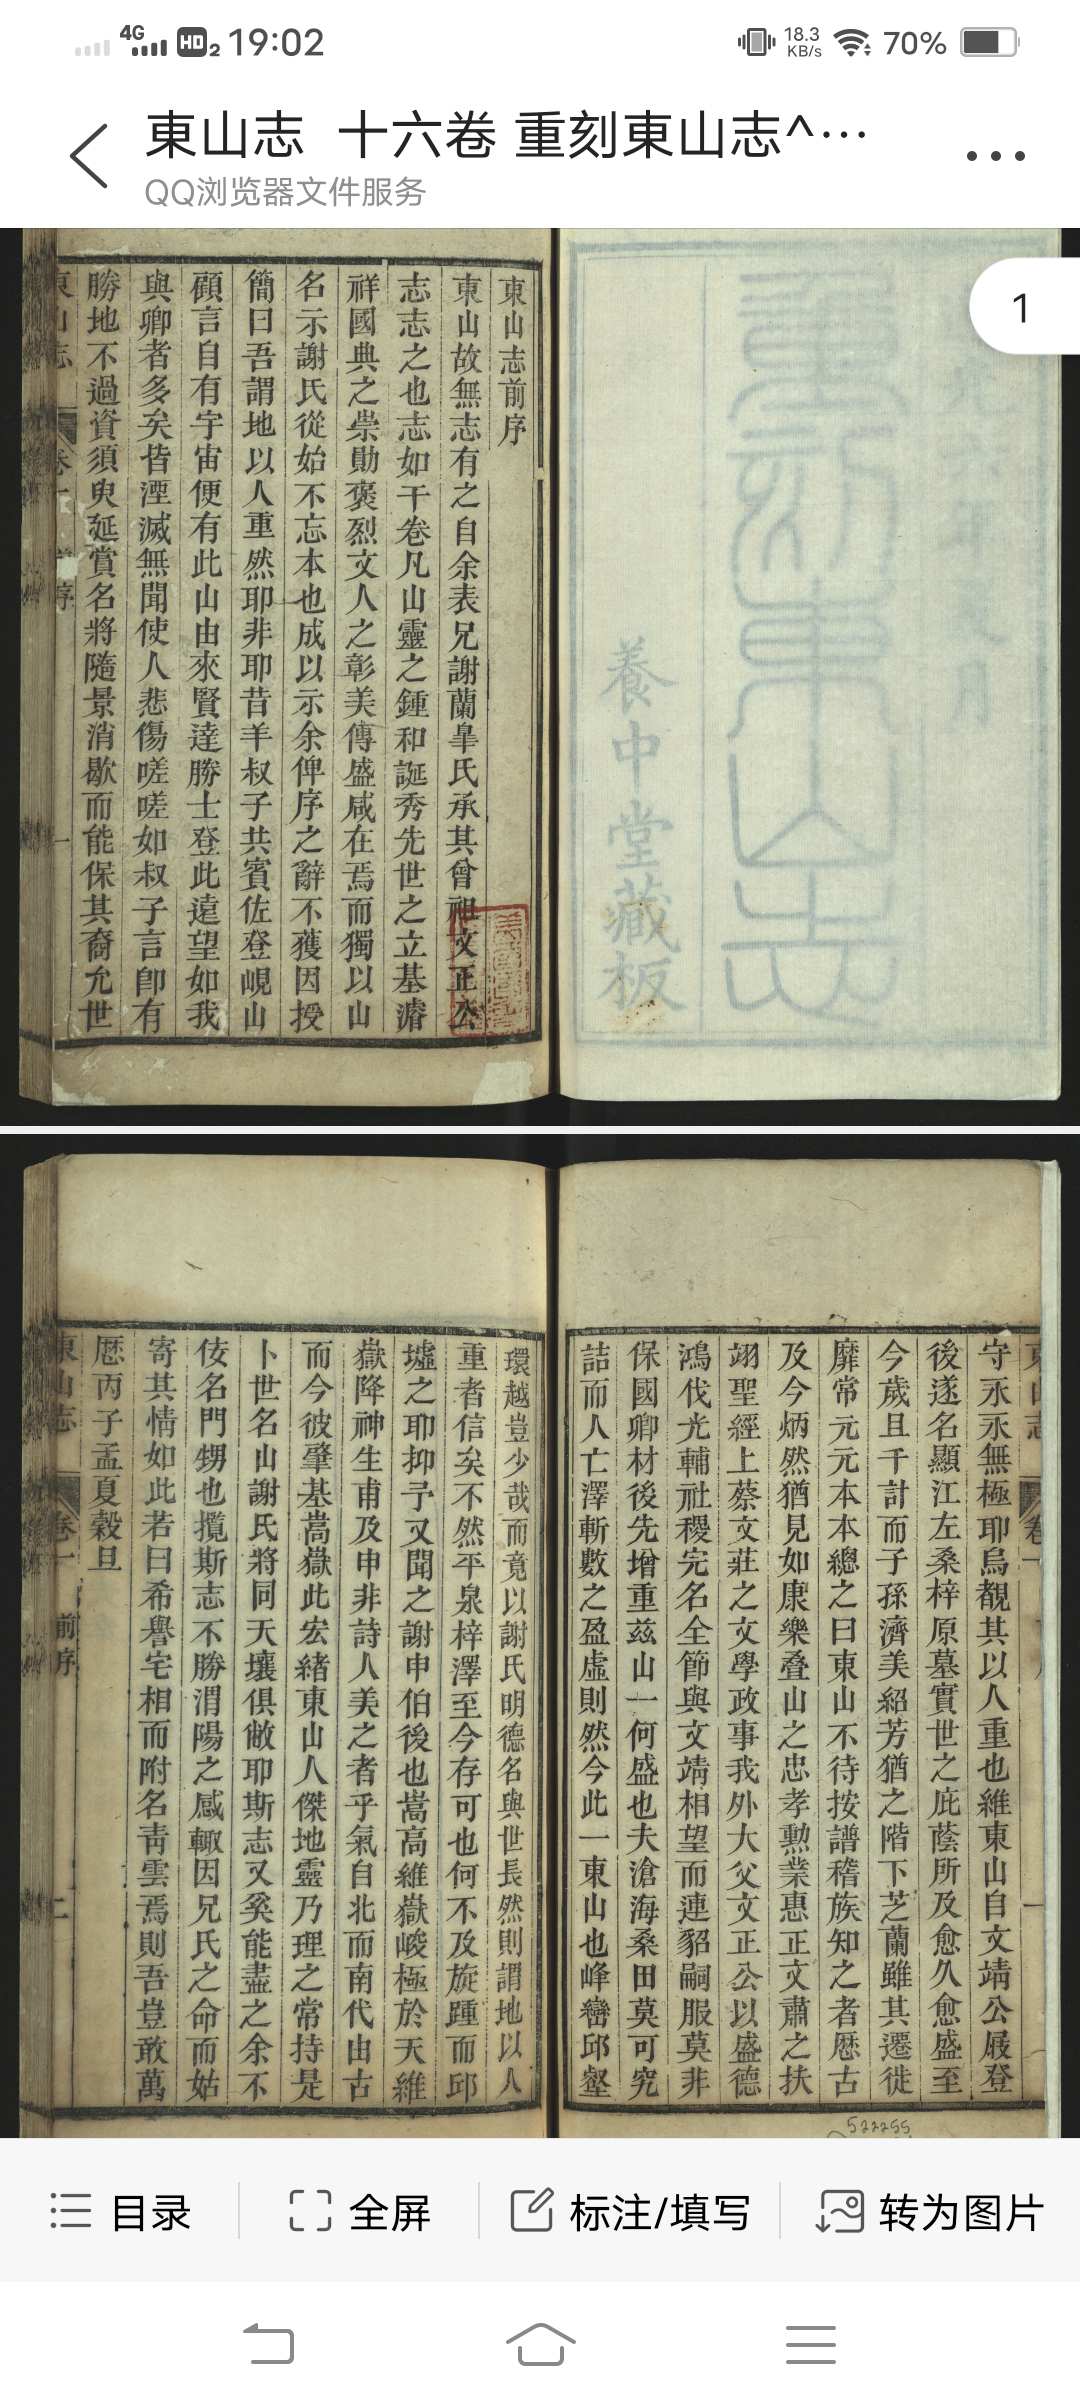 4G HD 2 19:02
18.3 KB/s 70%
東山志 十六卷 重刻東山志^…
QQ浏览器文件服务
1
重刻東山志
養中堂藏板
東山志前序
東山故無志有之自余表兄謝蘭臯氏承其曾祖文正公
志志之也志如干卷凡山靈之鍾和誕秀先世之立基濬
祥國典之崇勛褒烈文人之彰美傳盛咸在焉而獨以山
名示謝氏從始不忘本也成以示余俾序之辭不獲因授
簡曰吾謂地以人重然耶非耶昔羊叔子共賓佐登峴山
顧言自有宇宙便有此山由來賢達勝士登此遠望如我
與卿者多矣皆湮滅無聞使人悲傷嗟嗟如叔子言卽有
勝地不過資須臾延賞名將隨景消歇而能保其裔允世
東山志 卷一 前序 一
守永永無極耶烏覩其以人重也維東山自文靖公屐登
後遂名顯江左桑梓原墓實世之庇蔭所及愈久愈盛至
今歲且千計而子孫濟美紹芳猶之階下芝蘭雖其遷徙
靡常元元本本總之曰東山不待按譜稽族知之者歴古
及今炳然猶見如康樂叠山之忠孝勲業惠正文肅之扶
翊聖經上蔡文莊之文學政事我外大父文正公以盛德
鴻伐光輔社稷完名全節與文靖相望而連貂嗣服莫非
保國卿材後先增重茲山一何盛也夫滄海桑田莫可究
詰而人亡澤斬數之盈虛則然今此一東山也峰巒邱壑
環越豈少哉而竟以謝氏明德名與世長然則謂地以人
重者信矣不然平泉梓澤至今存可也何不及旋踵而邱
墟之耶抑予又聞之謝申伯後也嵩高維嶽峻極於天維
嶽降神生甫及申非詩人美之者乎氣自北而南代由古
而今彼肇基嵩嶽此宏緒東山人傑地靈乃理之常持是
卜世名山謝氏將同天壤俱敝耶斯志又奚能盡之余不
佞名門甥也攬斯志不勝渭陽之感輙因兄氏之命而姑
寄其情如此若曰希譽宅相而附名靑雲焉則吾豈敢萬
歴丙子孟夏穀旦
東山志 卷一 前序 二
522255
目录
全屏
标注/填写
转为图片